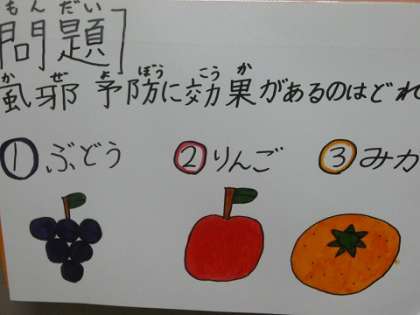 もんだい
問題]
かぜよぼうこうか
風邪予防に効果があるのはどれ
①ぶどう ②りんご ③みか